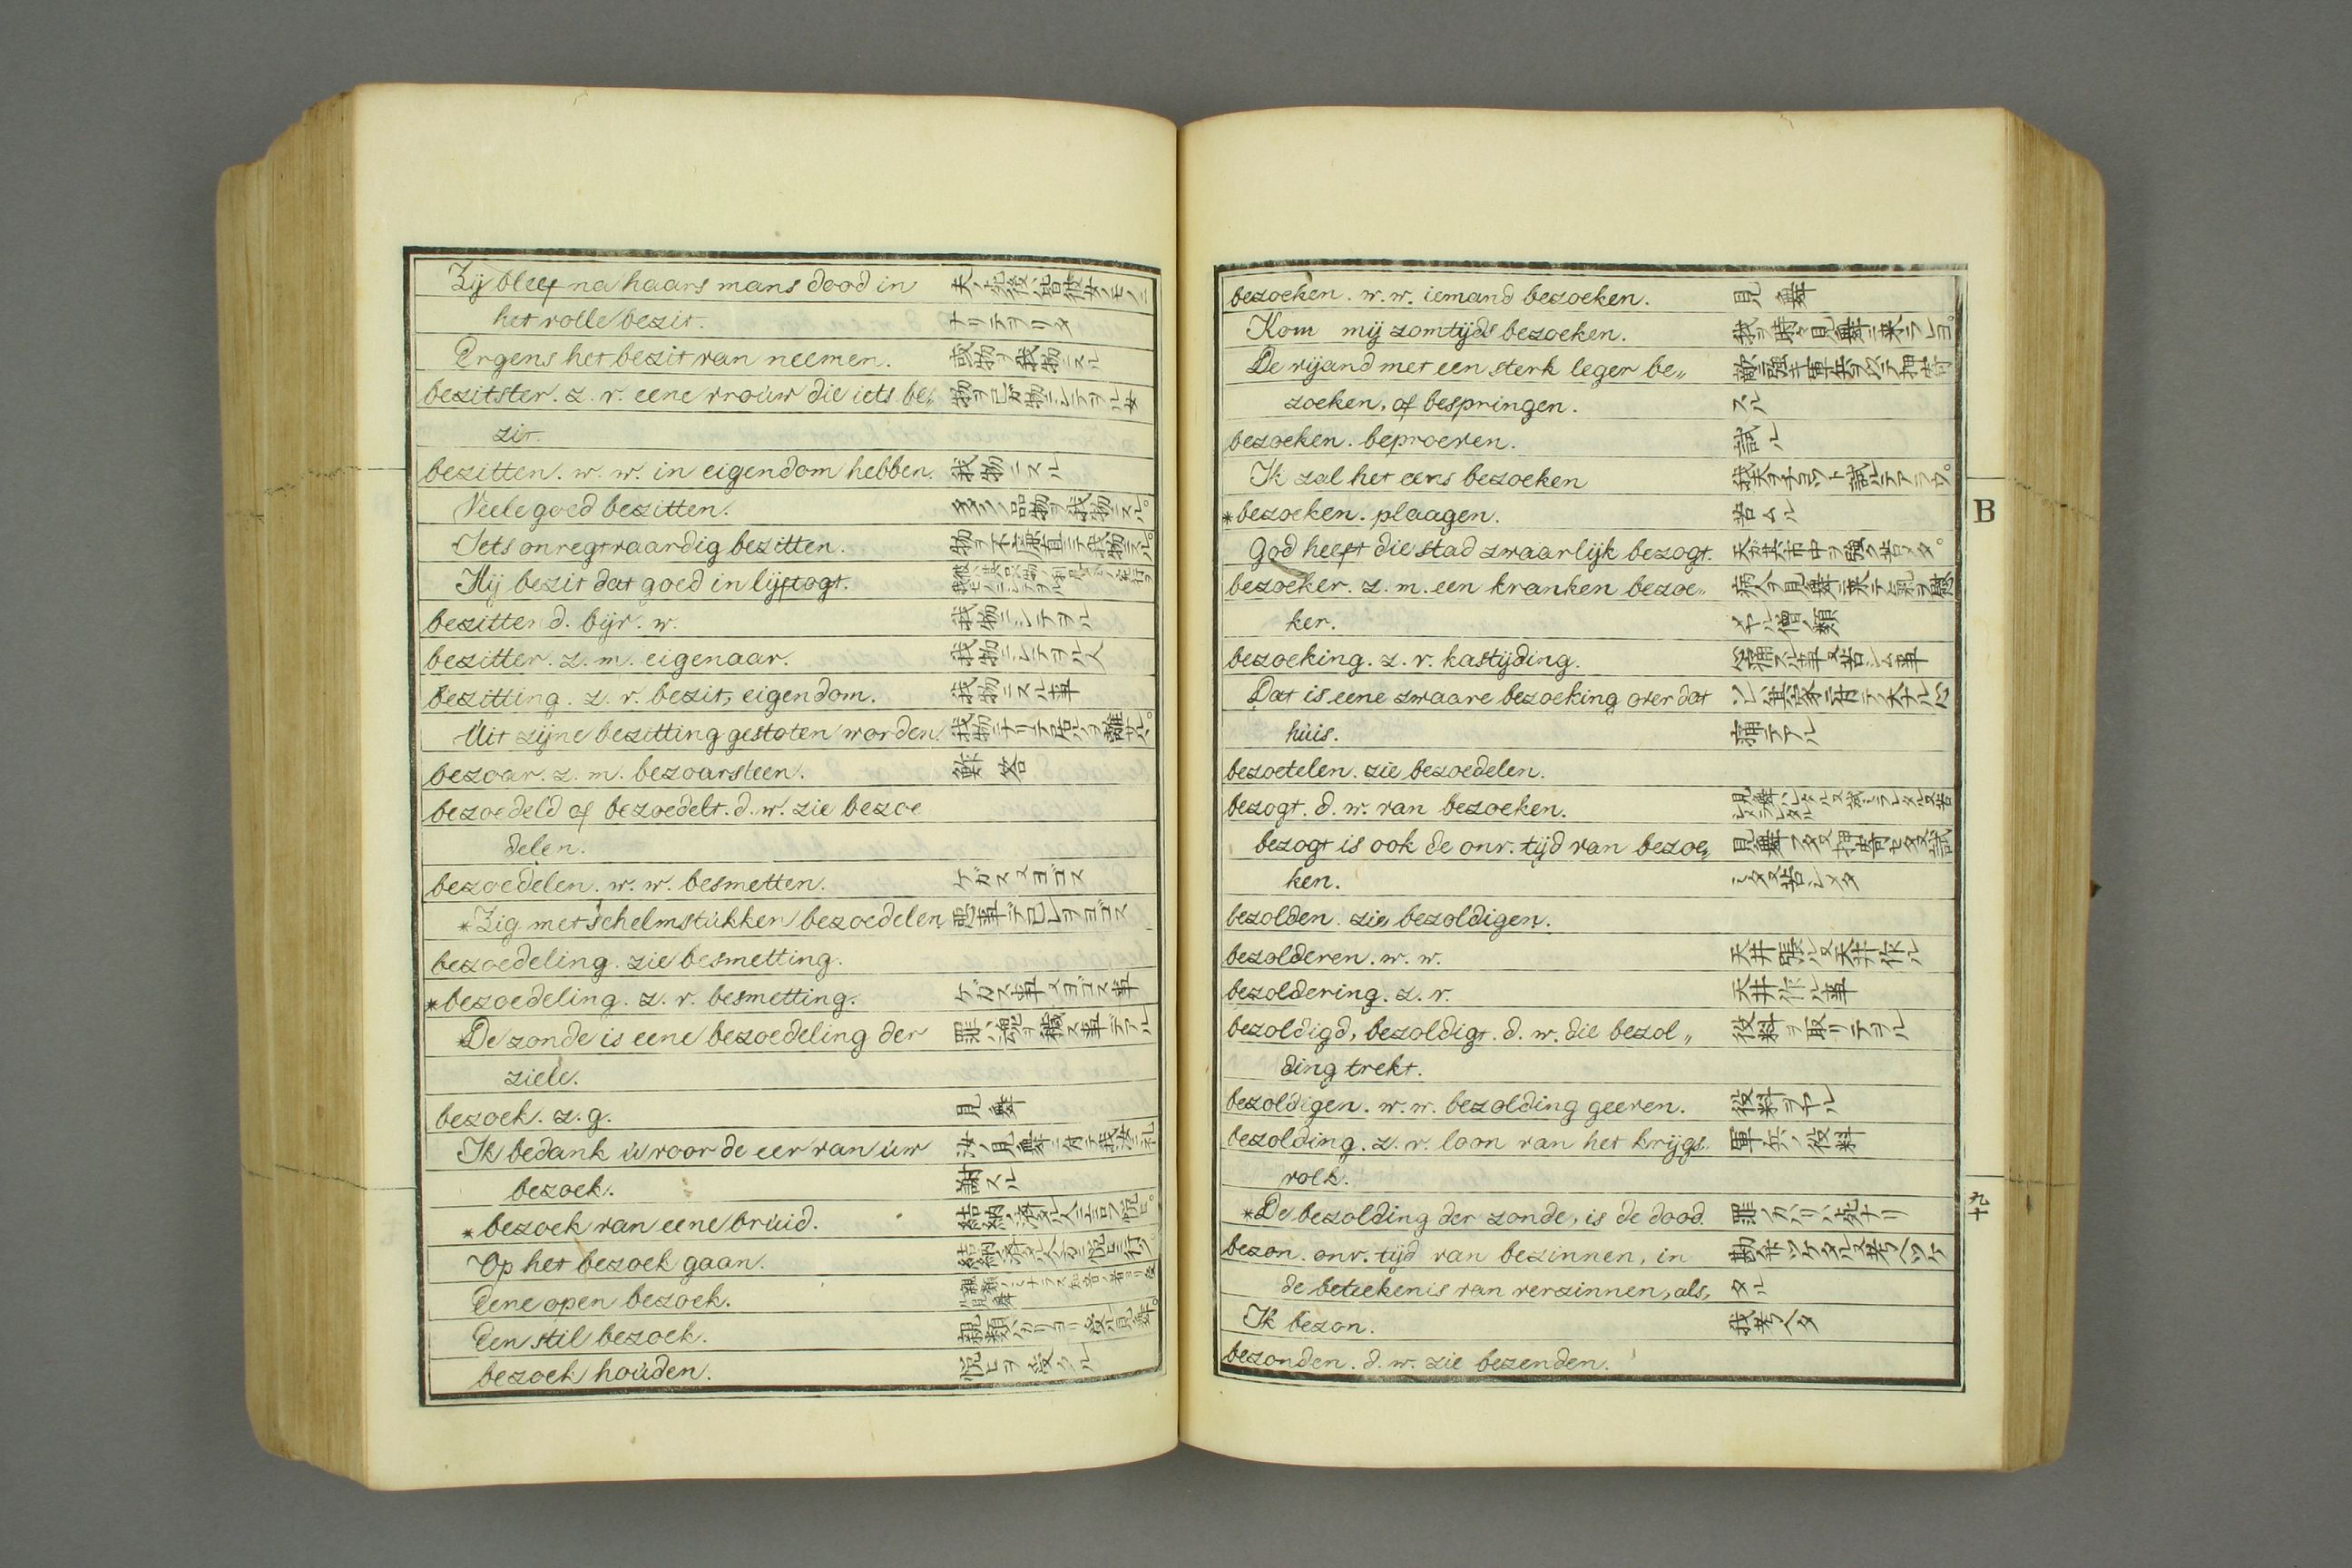 Zij bleef na haars mans dood in 夫ノ死後ハ皆彼女ノモノニ
het volle bezit. ナリテヲリタ
Ergens het bezit van neemen. 或物ヲ我物ニスル
bezitster. z. v. eene vroúw die iets be„ 物ヲ己ガ物ニシテヲル女
zit.
bezitten. w. w. in eigendom hebben. 我物ニスル
Veele goed bezitten. 多クノ品物ヲ我物ニスル。
Iets onregtvaardig bezitten. 物ヲ不廉直ニテ我物ニスル。
Hij bezit dat goed in lijftogt.
bezittend. bijv. w. 我物ニシテヲル
bezitter. z. m. eigenaar. 我物ニシテヲル人
bezitting. z. v. bezit, eigendom. 我物ニスル事
Uit zijne bezitting gestoten worden.
bezoar. z. m. bezoarsteen. 鮓荅
bezoedeld of bezoedelt. d. w. zie bezoe
delen.
bezoedelen. w. w. besmetten. ケガス又ヨゴス
*Zig met schelmstúkken bezoedelen 悪事デ己レヲヨゴス
bezoedeling. zie besmetting.
*bezoedeling. z. v. besmetting. ケガス事又ヨゴス事
*De zonde is eene bezoedeling der 罪ハ魂ヲ穢ス事デアル
ziele.
bezoek. z. g. 見舞
Ik bedank ú voor de eer van úw 汝ノ見舞ニ有テ我等ニ礼
bezoek. 謝スル
*bezoek van eene brúid.
Op het bezoek gaan.
Eene open bezoek.
Een stil bezoek. 親類バカリヨリ受ル見舞。
bezoek hoúden. 悦ヒヲ受クル
bezoeken. w. w. iemand bezoeken. 見舞
Kom mij zomtijds bezoeken. 我ヲ時々見舞ニ来ラレヨ。
De vijand met een sterk leger be„ 敵ヲ強キ軍兵ヲ以テ押寄
zoeken, of bespringen. スル
bezoeken. beproeven. 試ル
Ik zal het eens bezoeken 我夫ヲチヨツト試ルデアラウ。
*bezoeken. plaagen. 苦ムル
God heeft die stad zwaarlijk bezogt. 天ガ其市中ヲ強ク苦メタ。
bezoeker. z. m. een kranken bezoe„
ker. メヤル僧ノ類
bezoeking. z. v. kastijding. 心痛スル事又苦シム事
Dat is eene zwaare bezoeking over dat ソレハ其家ニ有テ大ナル心
húis. 痛デアル
bezoetelen. zie bezoedelen.
bezogt. d. w. van bezoeken.
bezogt is ook de onv. tijd van bezoe„ 見舞フタ又押寄セタ又試
ken. ミタ又苦シメタ
bezolden. zie bezoldigen.
bezolderen. w. w. 天井張ル又天井作ル
bezoldering. z. v. 天井作ル事
bezoldigd, bezoldigt. d. w. die bezol„ 役料ヲ取リテヲル
ding trekt.
bezoldigen. w. w. bezolding geeven. 役料ヲヤル
bezolding. z. v. loon van het krijgs. 軍兵ノ役料
volk.
*De bezolding der zonde, is de dood. 罪ノカハリハ死ナリ
bezon. onv. tijd van bezinnen, in 勘弁ツケタル又考ヘツケ
de beteekenis van verzinnen, als, タル
Ik bezon. 我考ヘタ
bezonden. d. w. zie bezenden.
B
九十